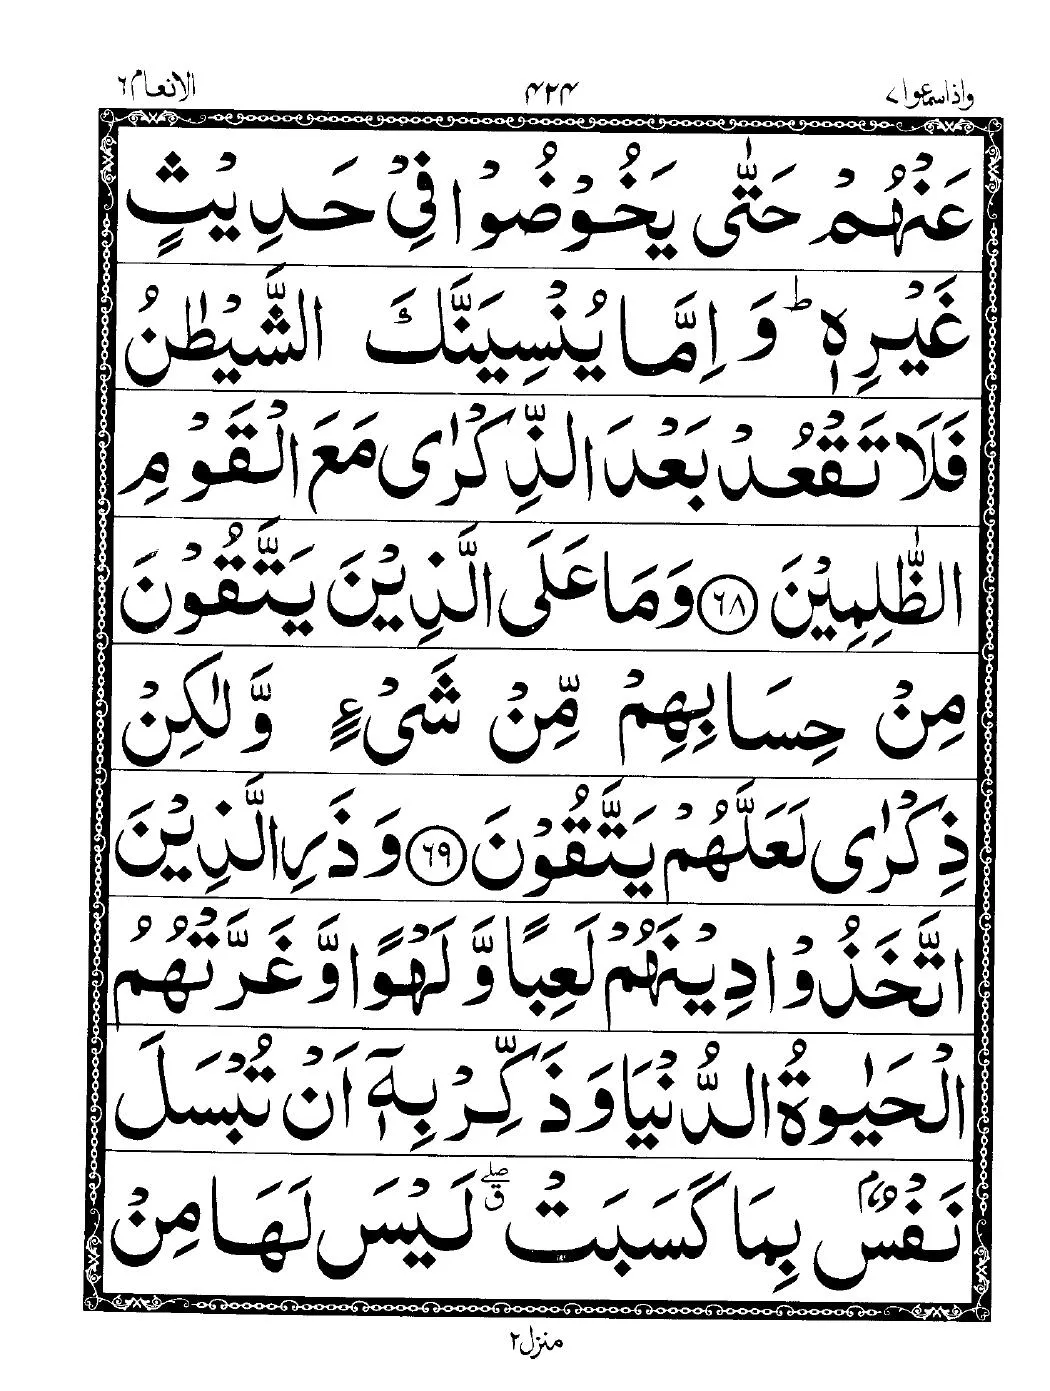 واذاسمعوا ۷ ۴۲۴ الانعام ۶
عَنْهُمْ حَتّٰى يَخُوْضُوْا فِىْ حَدِيْثٍ
غَيْرِهٖ ؕ وَ اِمَّا يُنْسِيَنَّكَ الشَّيْطٰنُ
فَلَا تَقْعُدْ بَعْدَ الذِّكْرٰى مَعَ الْقَوْمِ
الظّٰلِمِيْنَ ۶۸ وَمَا عَلَى الَّذِيْنَ يَتَّقُوْنَ
مِنْ حِسَابِهِمْ مِّنْ شَىْءٍ وَّلٰكِنْ
ذِكْرٰى لَعَلَّهُمْ يَتَّقُوْنَ ۶۹ وَ ذَرِ الَّذِيْنَ
اتَّخَذُوْا دِيْنَهُمْ لَعِبًا وَّ لَهْوًا وَّ غَرَّتْهُمُ
الْحَيٰوةُ الدُّنْيَا وَ ذَكِّرْ بِهٖۤ اَنْ تُبْسَلَ
نَفْسٌۢ بِمَا كَسَبَتْ ۖق لَيْسَ لَهَا مِنْ
منزل ۲